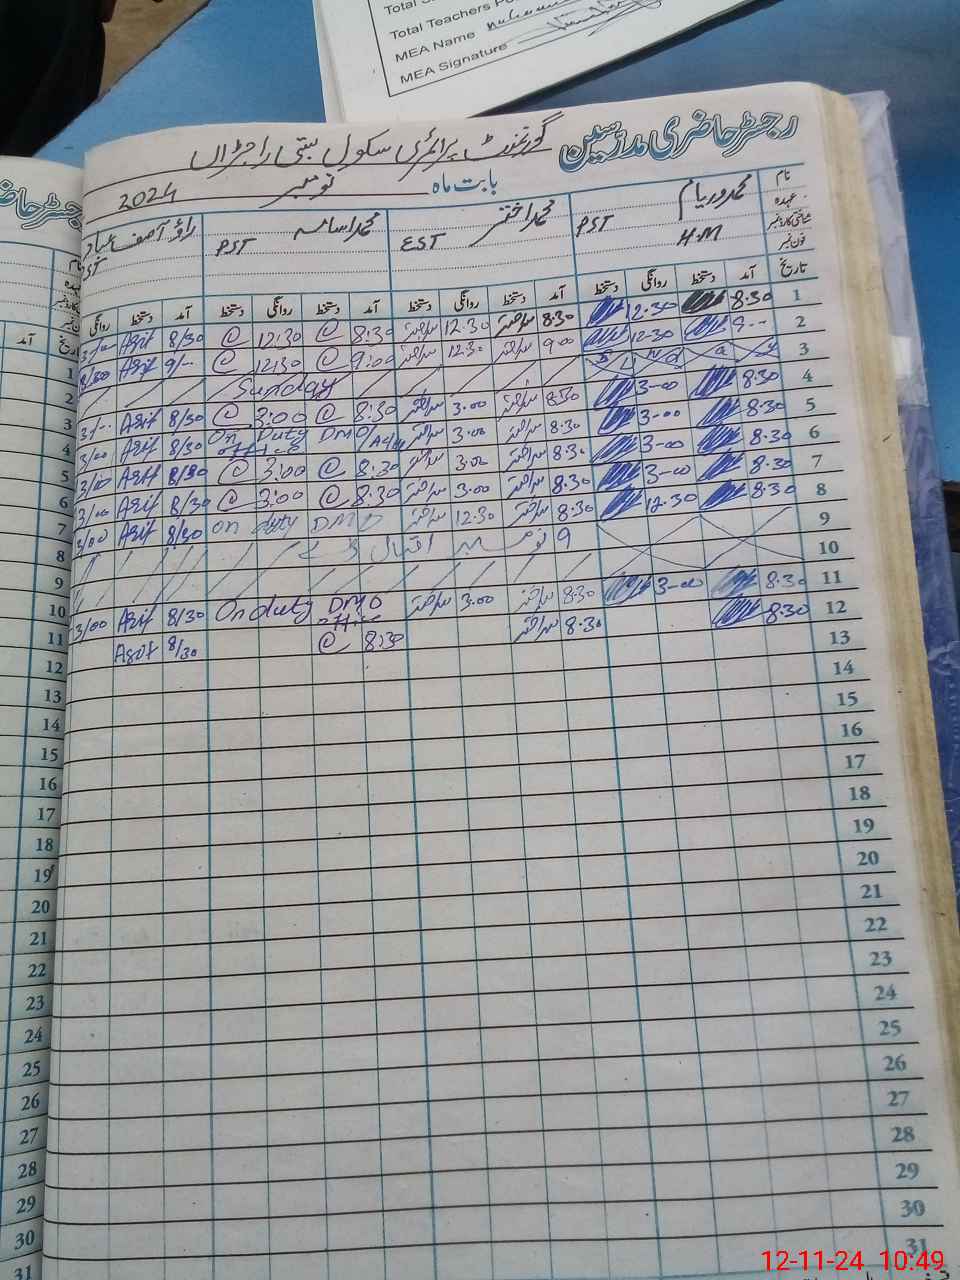 Total Teachers
MEA Name
MEA Signature
رجسٹر حاضری مدرسین
گورنمنٹ پرائمری سکول بستی راجڑاں
بابت ماہ نومبر 2024
نام محمد وریام محمد اختر محمد اسامہ راؤ آصف
عہدہ PST H.M EST PST
فون نمبر
تاریخ آمد دستخط روانگی دستخط آمد دستخط روانگی دستخط آمد دستخط روانگی دستخط آمد دستخط روانگی
1 8.30 12.30 8.30 12.30 8:30 @ 12:30 @ 8/30 Asif
2 9-- 12-30 900 12.30 9:00 @ 12:30 @ 9/-- Asif
3 Sunday
4 8:30 3-00 8:30 3.00 8:30 @ 3:00 @ 8/30 Asif
5 8:30 3-00 8.30 3.00 On Duty DMO office 8/30 Asif 3/00
6 8:30 3-00 8.30 3.00 8:30 @ 3:00 @ 8/30 Asif 3/00
7 8:30 3-00 8.30 3.00 8:30 @ 3:00 @ 8/30 Asif 3/00
8 8:30 12.30 8:30 12.30 On duty DMO 8/30 Asif 3/00
9 9 نومبر اقبال ڈے
10
11 8:30 3-00 8:30 3.00 On duty DMO office 8/30 Asif 3/00
12 8:30 8:30 8:30 @ 8/30 Asif
13
14
15
16
17
18
19
20
21
22
23
24
25
26
27
28
29
30
31
رجسٹر حاضری
آمد
1
2
3
4
5
6
7
8
9
10
11
12
13
14
15
16
17
18
19
20
21
22
23
24
25
26
27
28
29
30
31
12-11-24 10:49